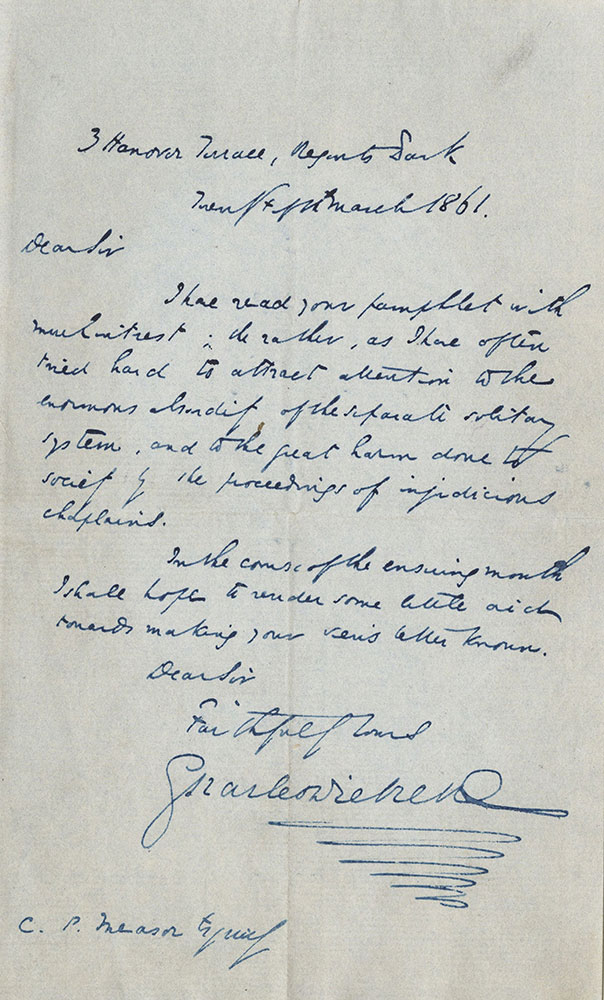 3 Hanover Terrace, Regents Park
Twenty Fifth March 1861.
Dear Sir
I have read your pamphlet with
much interest; the rather, as I have often
tried hard to attract attention to the
enormous absurdity of the separate solitary
system, and to the great harm done to
society by the proceedings of injudicious
chaplains.
In the course of the ensuing month
I shall hope to render some little aid
towards making your views better known.
Dear Sir
Faithfully Yours
Charles Dickens
C. P. Measor Esquire